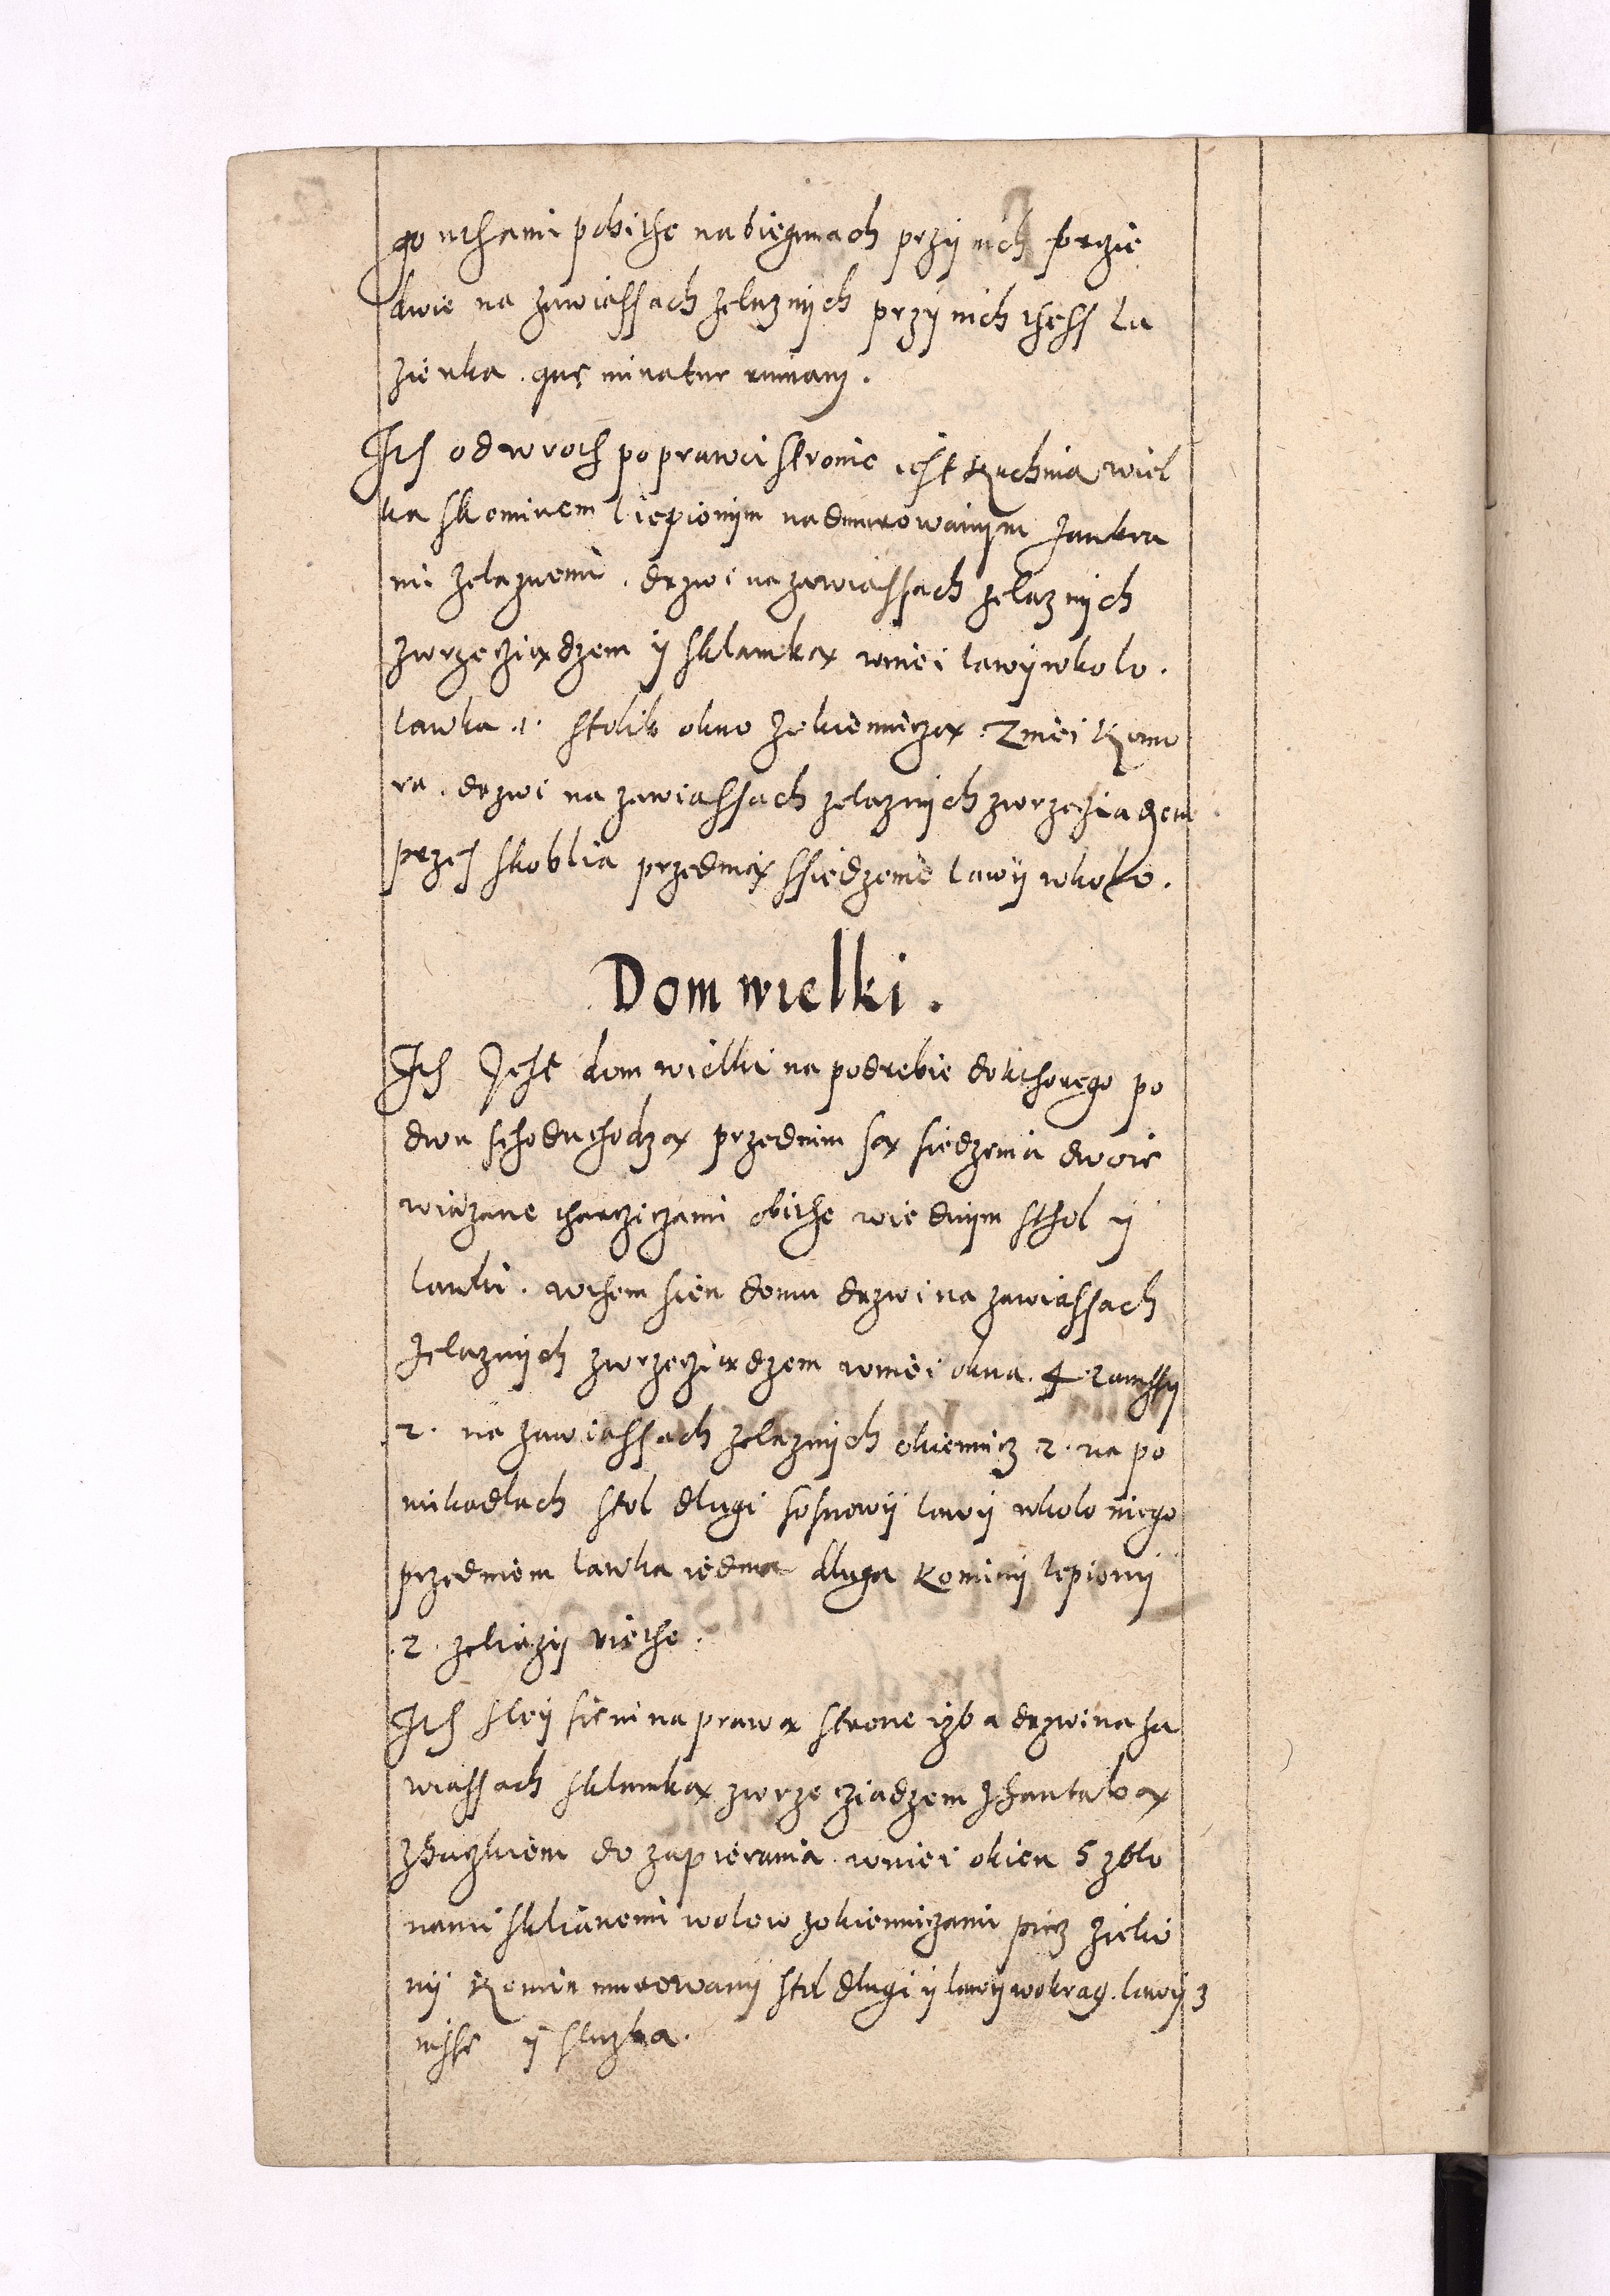 go nthami pobithe nabiegunach przÿ nich forgie
dwie na zawiassach zelaznÿch przÿ nich thess la
zienka. que minatur ruinam.
Ith od wroth po prawei stronie iest Kuchnia wiel
ka skominem liepionÿm nadmurowanÿm Jankra
mi zelaznemi. drzwi na zawiassach zelaznÿch
zwrzecziądzem ÿ sklamką wniei lawÿ wkolo.
lawka .1. stolik okno zokienniczą. Zniei Komo
ra. drzwi na zawiassach zelaznÿch zwrzecziadzem
przes skoblia przednią ssiedzenie lawÿ wkolo.
Dom wielki.
Ith Jest dom wielki na podrebie dokthorego po
dwu schodu chodzą przednim są siedzenia dwoie
wiązane tharczicżami obithe wiednÿm sthol ÿ
lawki. wthem sien domu drzwi na zawiassach
zelaznÿch zwrzecziądzem wniei okna. 4 ramssÿ
.2. na zawiassach zelaznÿch okiennicz 2. na po
mikadlach stol dlugi sosnowÿ lawÿ wkolo niego
przedniem lawka iedna dluga Kominÿ lepionÿ
.2. zeliazÿ viethe.
Ith stÿ sieni na prawą strone izba drzwi na za
wiassach sklamką zwrzecziadzem zhantabą
zhaczkiem do zapierania. wniei okien 5 zblo
nami sklianemi wolow zokienniczami piecz zielie
nÿ Komin murowanÿ stol dlugi ÿ lawÿ wokrag. lawÿ 3
nisse ÿ sluzba.